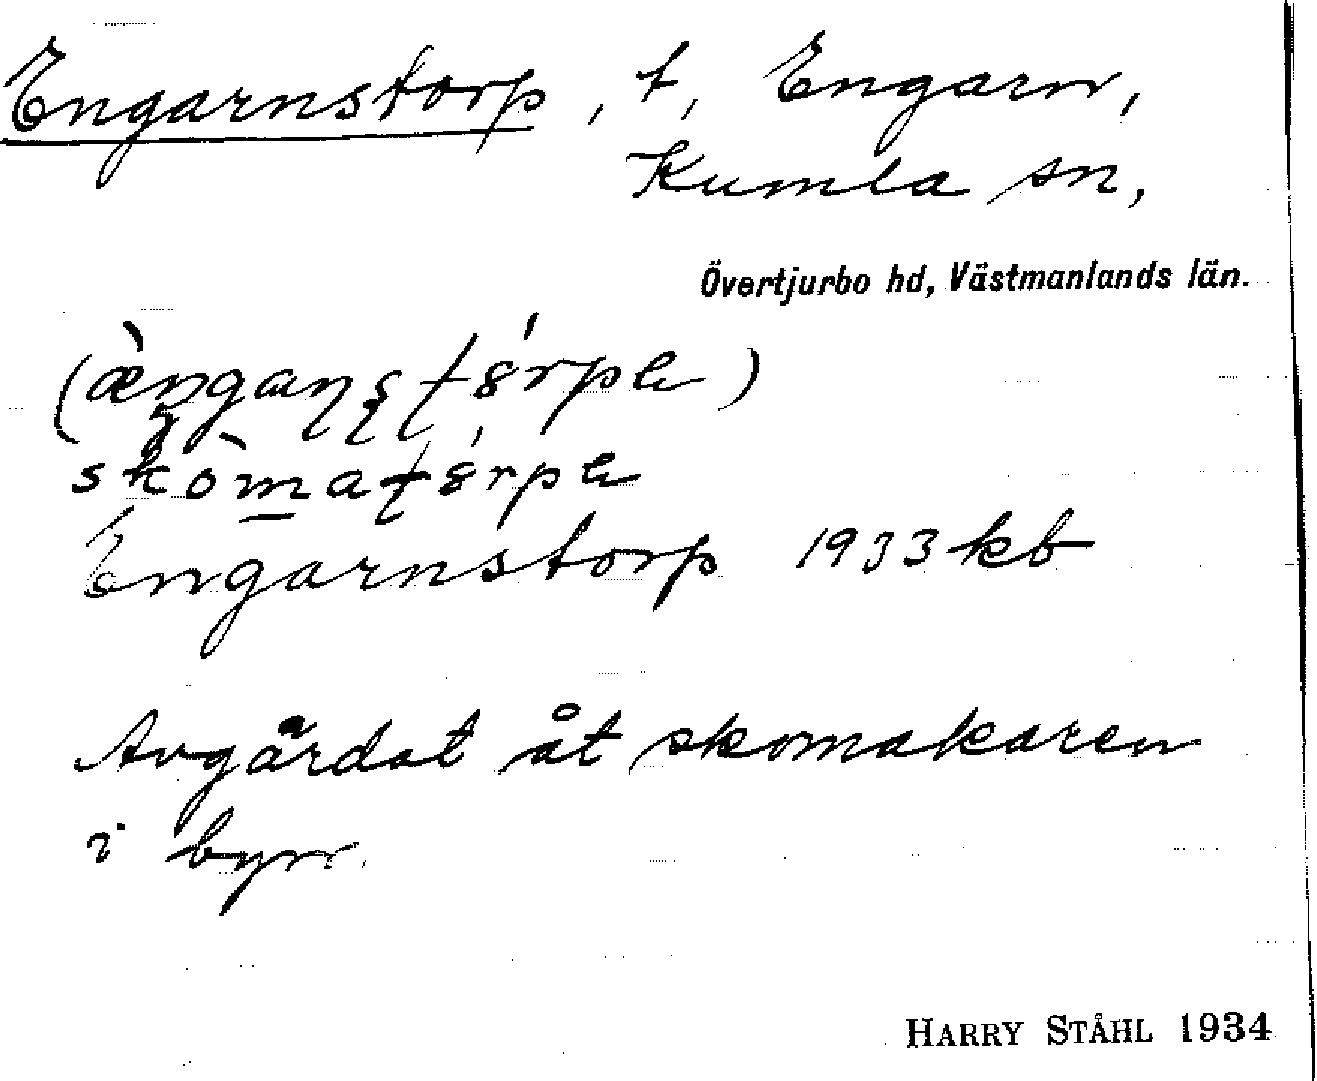 Engarnstorp, t, Engarn,
Kumla sn,
Övertjurbo hd, Västmanlands län.
Engarnstorp 1933 kb
Avgärdat åt skomakaren
i byn.
HARRY STÅHL 1934